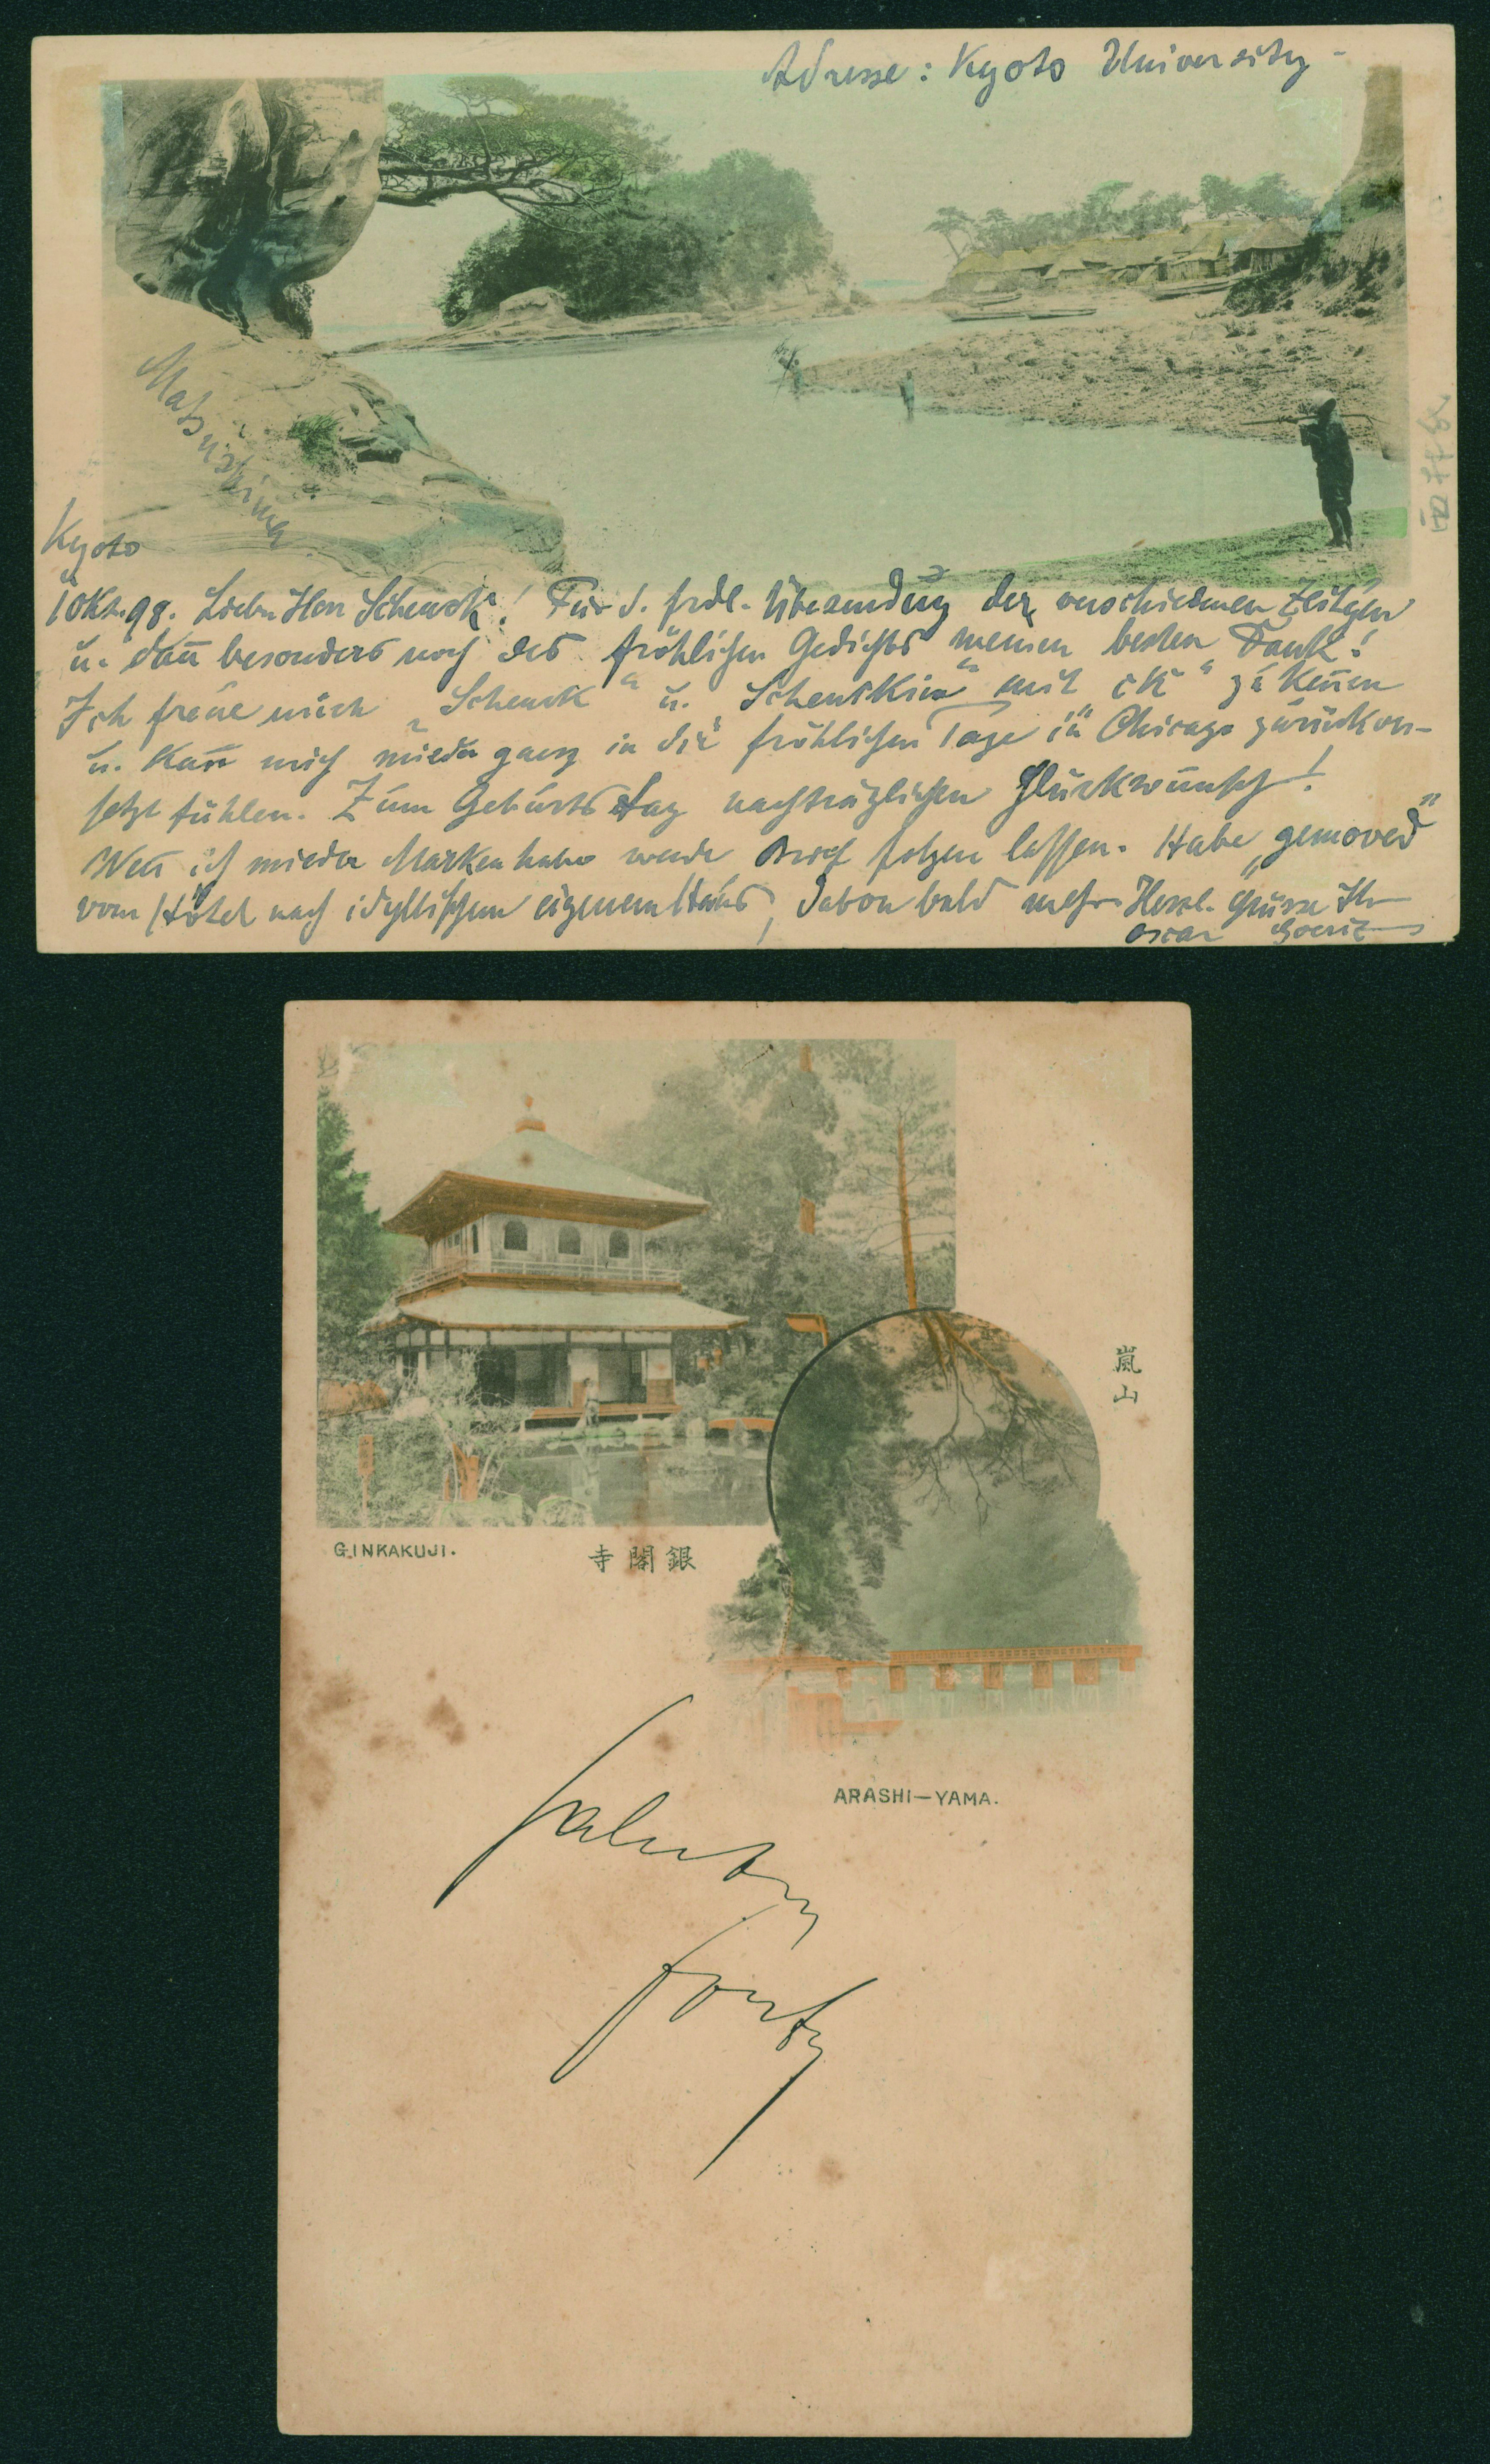 Adresse: Kyoto University
Matsushima
Kyoto
10 Okt. 98. Lieber Herr Schenck! Für d. frdl. Übersendung der verschiedenen Zeitungen
u. dann besonders noch des fröhlichen Gedichts meinen besten Dank!
Ich freue mich „Schenck“ u. Schenkkin“ mit „ck“ zu kennen
u. kann mich wieder ganz in die fröhlichen Tage in Chicago zurückver-
setzt fühlen. Zum Geburtstag nachträglichen Glückwunsch!
Wenn ich wieder Marken habe werde Brief folgen lassen. Habe „gemoved“
vom Hôtel nach idyllischem eigenem Haus, davon bald mehr. Herzl. Grüsse Ihr
Oscar
GINKAKUJI.
寺閣銀
嵐山
ARASHI-YAMA.